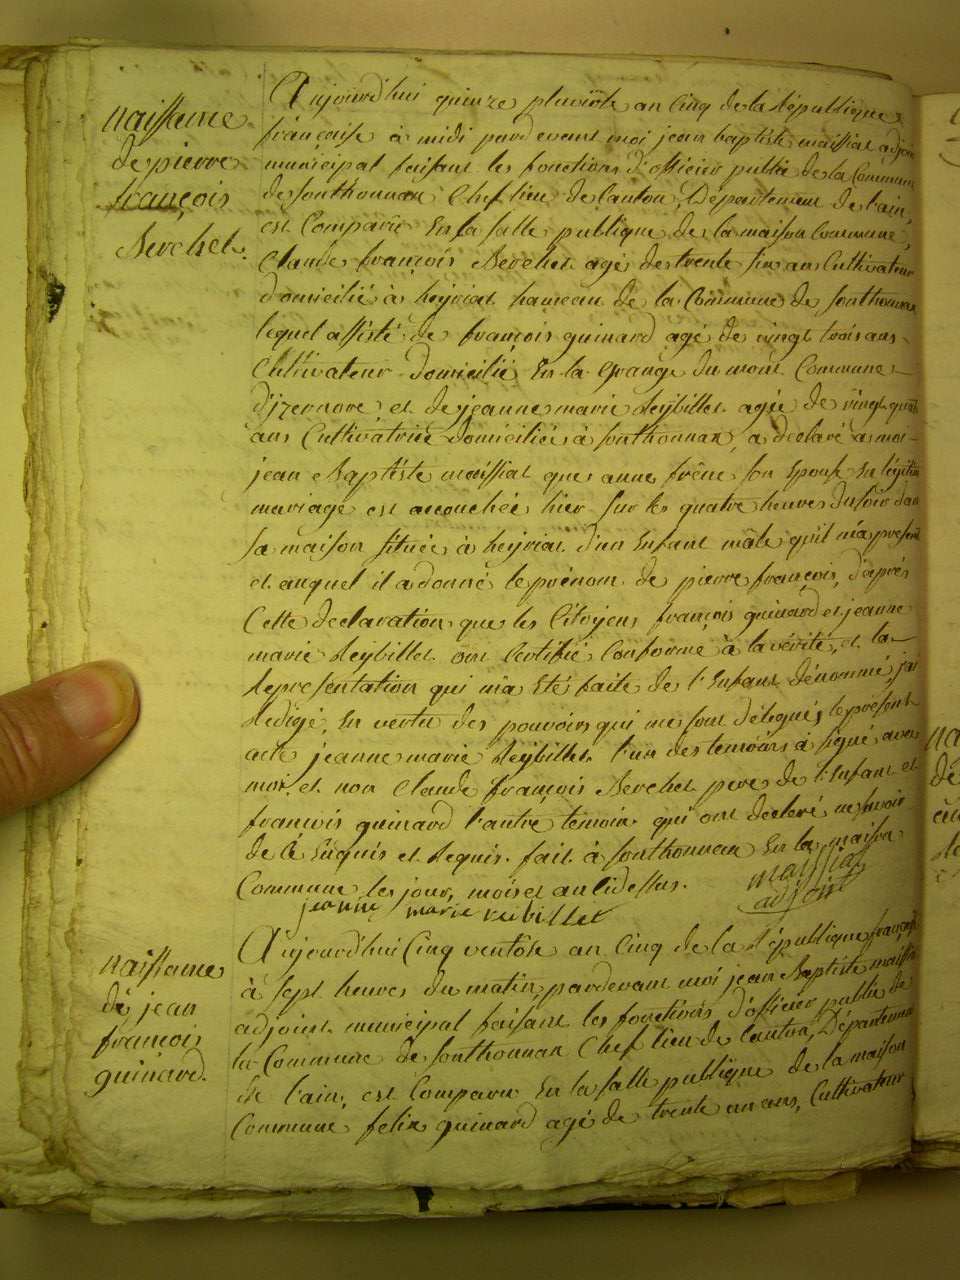 naissance
de pierre
françois
Berchet.
Aujourd'hui quinze pluviôse an Cinq de la République
françoise à midi pardevant moi jean baptiste maissiat adjoint
municipal faisant les fonctions d'officier public de la Commune
de Sonthonnax Chef lieu de Canton, Département de l'ain,
est Comparu En la salle publique de la maison Commune,
Claude françois Berchet agé de trente six ans Cultivateur
Domicilié à heyriat hameau de la Commune de Sonthonnax
lequel assisté de françois guinard agé de vingt trois ans
Cultivateur domicilié En la Grange du mont Commune
d'izernore, et de jeanne marie Reybillet agée de vingt quatre
ans Cultivatrice Domiciliée à Sonthonnax, a déclaré à moi
jean Baptiste maissiat que anne frêne son Epouse En légitime
mariage est accouchée hier sur les quatre heures du soir dans
sa maison située à heyriat d'un Enfant mâle qu'il m'a présenté
et auquel il a donné le prénom de pierre françois, d'après
Cette declaration que les Citoyens françois guinard et jeanne
marie Reybillet ont Certifié Conforme à la vérité, et la
Représentation qui m'a Eté faite de l'Enfant dénommé, j'ai
Redigé En vertu des pouvoirs qui me sont délegués le présent
acte jeanne marie Reybillet l'un des temoins à signé avec
moi et non Claude françois Berchet pere de l'Enfant et
françois guinard l'autre témoin qui ont declaré ne savoir
de Ce Enquis et Requis. fait à Sonthonnax En la maison
Commune les jour, mois et an Cidessus.
maissiat
adjoint
jeanne marie reibillet
naissance
de jean
françois
guinard.
Aujourd'hui Cinq ventôse an Cinq de la République françoise
à sept heures du matin pardevant moi jean Baptiste maissiat
adjoint municipal faisant les fonctions d'officier public de
la Commune de Sonthonnax Chef lieu de Canton, Département
de l'ain, est Comparu En la salle publique de la maison
Commune felix guinard agé de trente un ans, Cultivateur